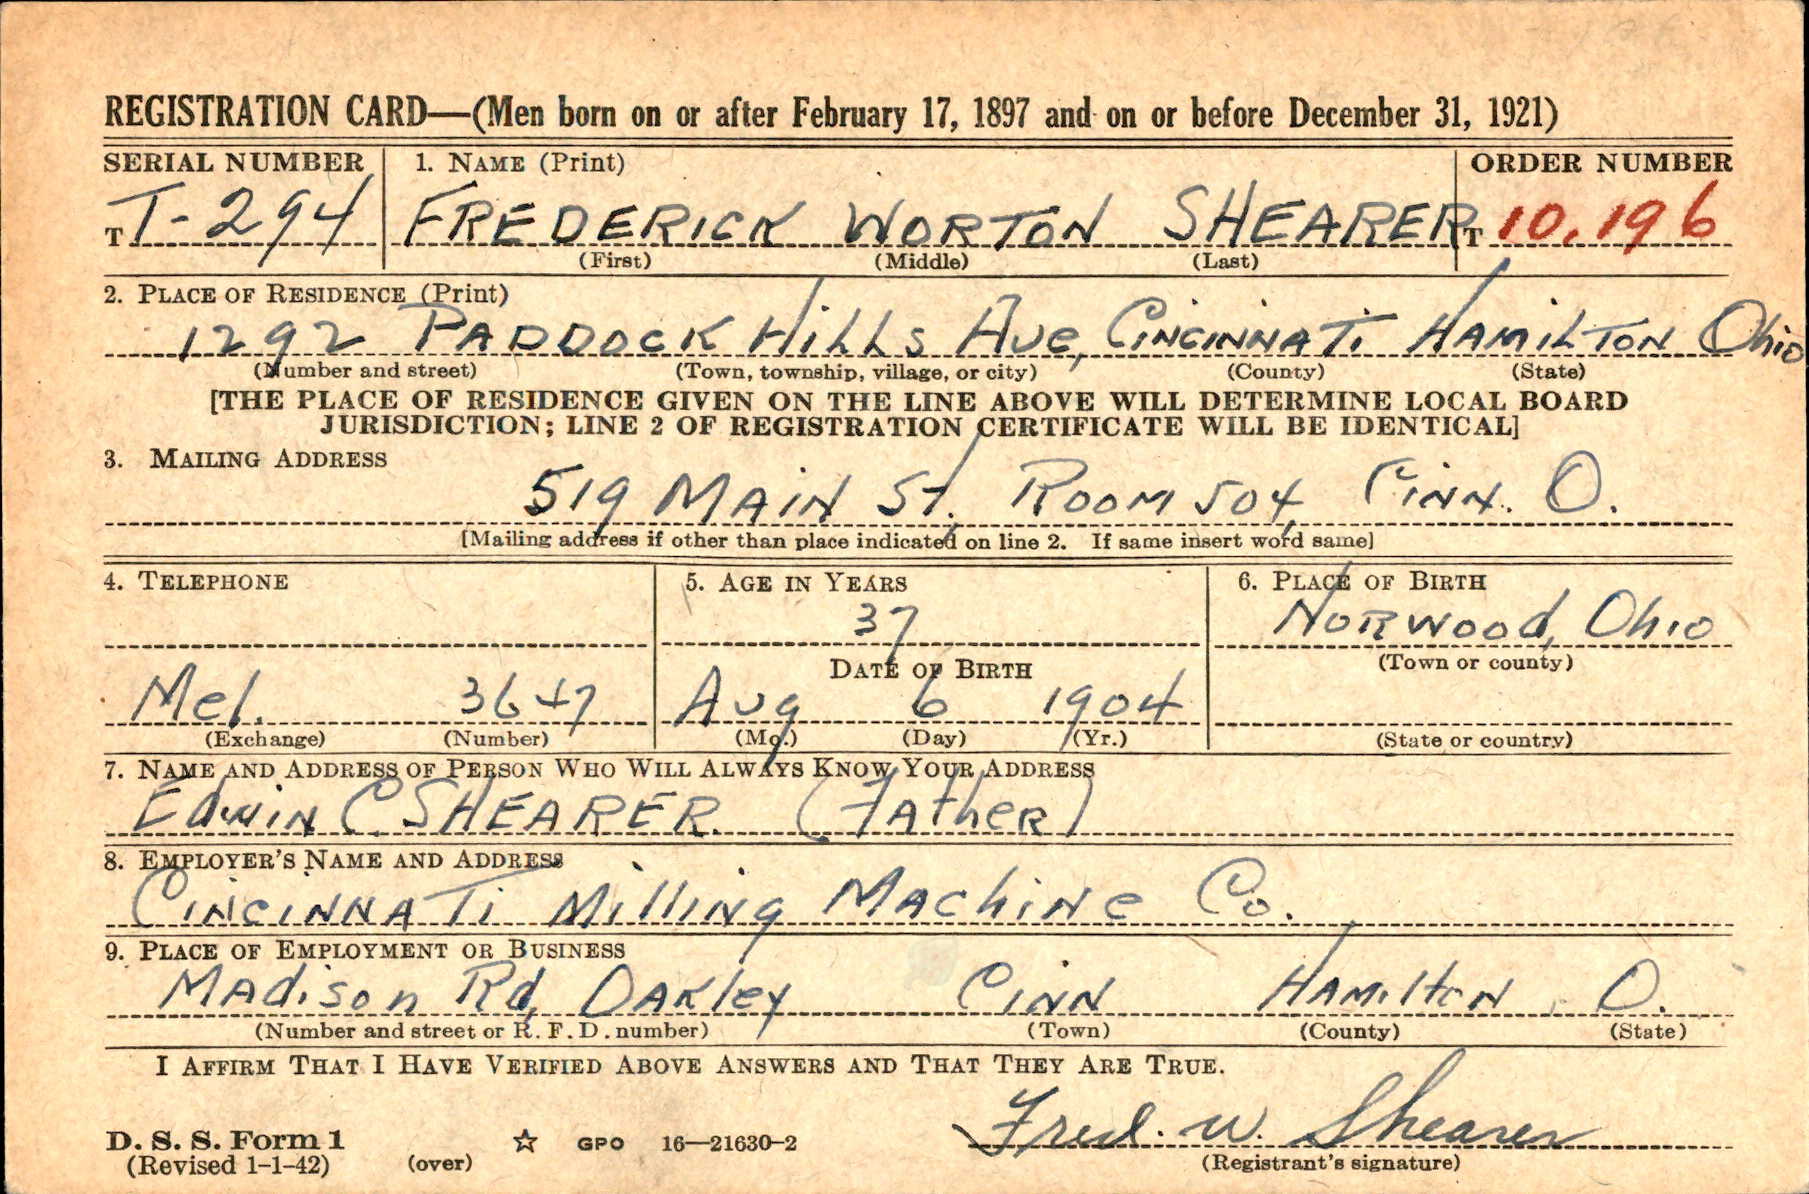 REGISTRATION CARD—(Men born on or after February 17, 1897 and on or before December 31, 1921)
SERIAL NUMBER 1. NAME (Print) ORDER NUMBER
T T-294 FREDERICK WORTON SHEARER T 10,196
(First) (Middle) (Last)
2. PLACE OF RESIDENCE (Print)
1292 PADDOCK HILLS AVE, CINCINNATI HAMILTON Ohio
(Number and street) (Town, township, village, or city) (County) (State)
[THE PLACE OF RESIDENCE GIVEN ON THE LINE ABOVE WILL DETERMINE LOCAL BOARD
JURISDICTION; LINE 2 OF REGISTRATION CERTIFICATE WILL BE IDENTICAL]
3. MAILING ADDRESS
519 MAIN St, ROOM 504, CINN. O.
[Mailing address if other than place indicated on line 2. If same insert word same]
4. TELEPHONE 5. AGE IN YEARS 6. PLACE OF BIRTH
37 NORWOOD, Ohio
DATE OF BIRTH (Town or county)
Mel. 3647 Aug 6 1904
(Exchange) (Number) (Mo.) (Day) (Yr.) (State or country)
7. NAME AND ADDRESS OF PERSON WHO WILL ALWAYS KNOW YOUR ADDRESS
Edwin C. SHEARER. (FAther)
8. EMPLOYER'S NAME AND ADDRESS
CINCINNATI Milling MAchine Co.
9. PLACE OF EMPLOYMENT OR BUSINESS
MAdison Rd, OAKley CINN HAMIlton O.
(Number and street or R. F. D. number) (Town) (County) (State)
I AFFIRM THAT I HAVE VERIFIED ABOVE ANSWERS AND THAT THEY ARE TRUE.
Fred. W. Shearer
D. S. S. Form 1 ☆ GPO 16—21630-2
(Revised 1-1-42) (over) (Registrant's signature)